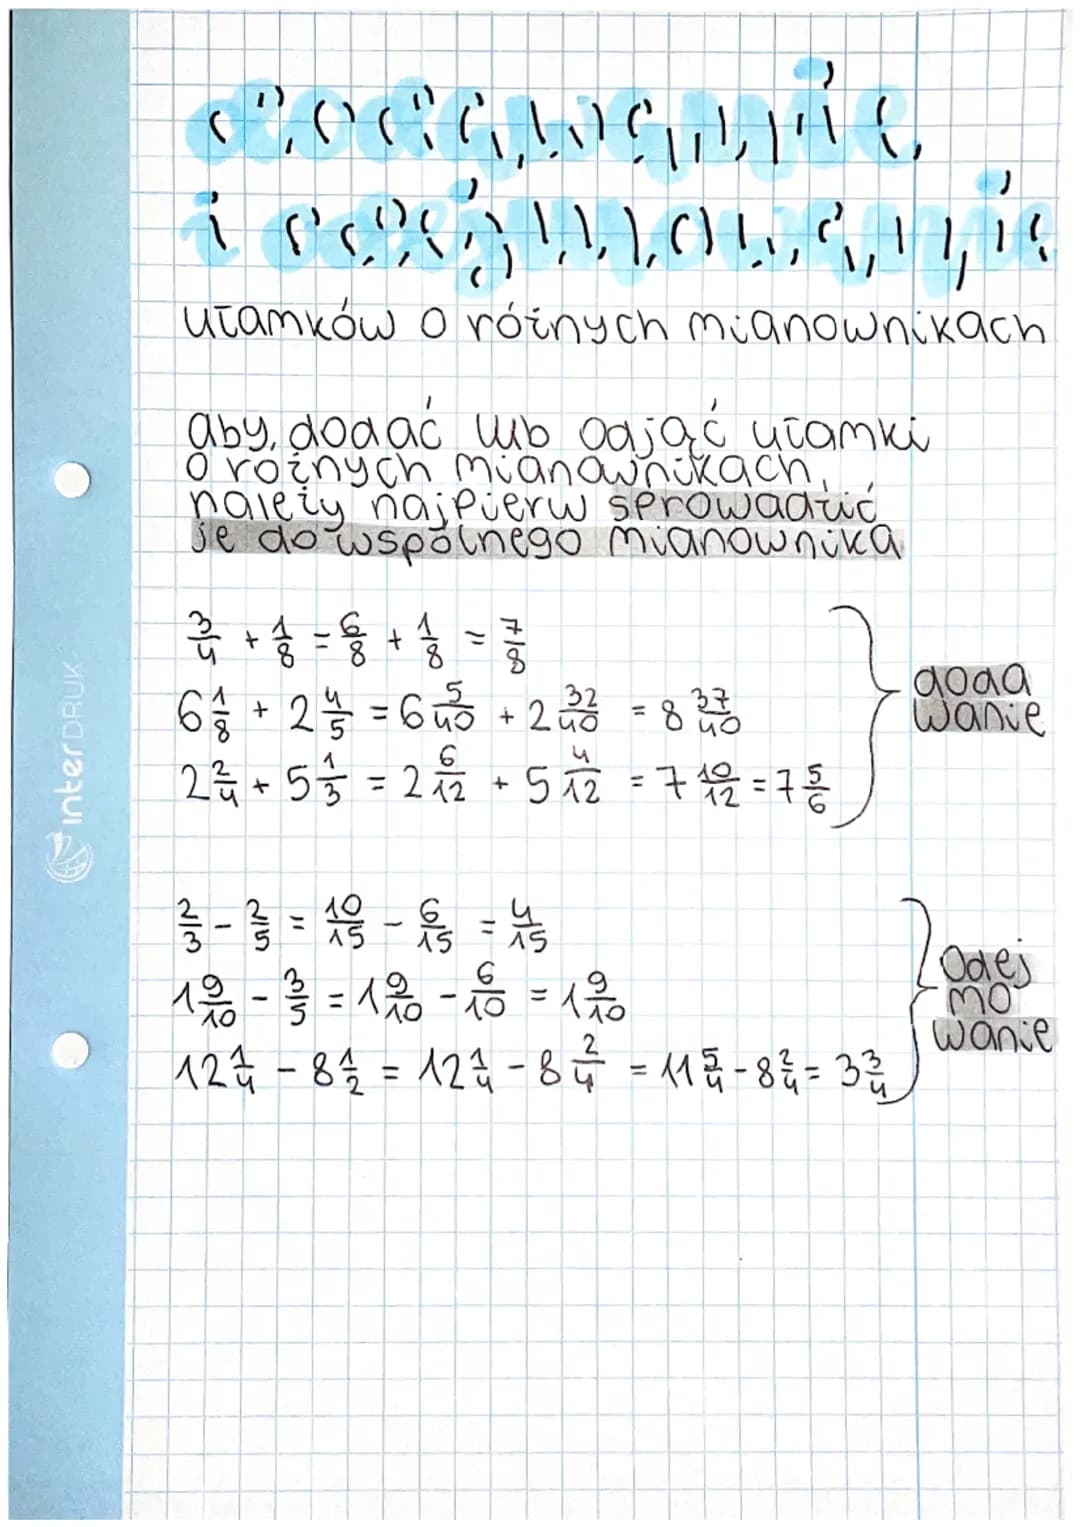 dodawanie
i odejmowanie
ułamków o różnych mianownikach
aby dodać lub odjąć ułamki
o różnych mianownikach,
należy najpierw sprowadzić
je do wspólnego mianownika
3/4 + 1/8 = 6/8 + 1/8 = 7/8
6 1/8 + 2 4/5 = 6 5/40 + 2 32/40 = 8 37/40
2 2/4 + 5 1/3 = 2 6/12 + 5 4/12 = 7 10/12 = 7 5/6
doda
wanie
2/3 - 2/5 = 10/15 - 6/15 = 4/15
1 9/10 - 3/5 = 1 9/10 - 6/10 = 1 9/10
12 1/4 - 8 1/2 = 12 1/4 - 8 2/4 = 11 5/4 - 8 2/4 = 3 3/4
Odej
mo
wanie
interDRUK